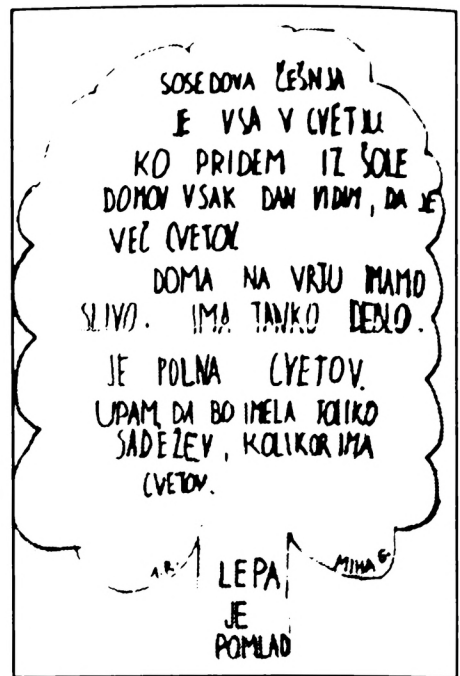 SOSEDOVA ČEŠNJA
JE VSA V CVETJU
KO PRIDEM IZ ŠOLE
DOMOV VSAK DAN VIDIM, DA JE
VEČ CVETOV
DOMA NA VRTU IMAMO
SLIVO. IMA TANKO DEBLO.
JE POLNA CVETOV.
UPAM, DA BO IMELA TOLIKO
SADEŽEV, KOLIKOR IMA
CVETOV.
1.B. MIHA G.
LEPA
JE
POMLAD